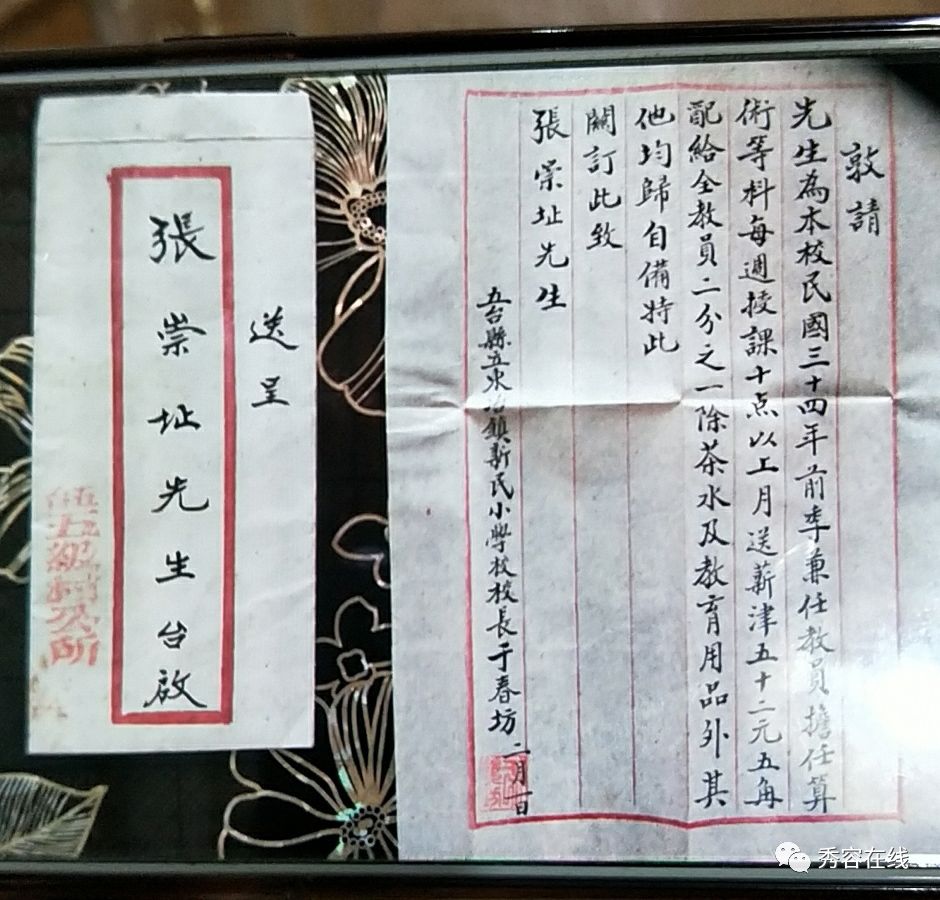 敦請
先生為本校民國三十四年前季兼任教員擔任算
術等科每週授課十点以上月送薪津五十二元五角
配給全教員二分之一除茶水及教育用品外其
他均歸自備特此
關訂此致
張崇址先生
五台縣五級治鎮新民小學校校長于春坊 二月一日
送呈
張崇址先生台啟
五級村公所
秀容在线